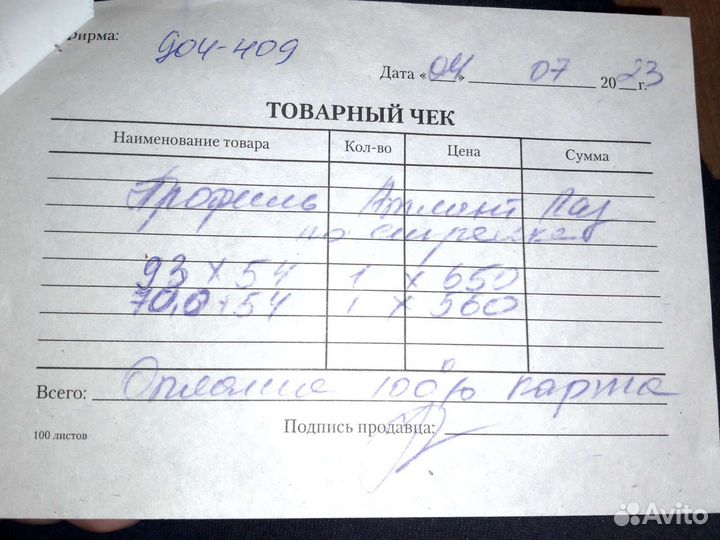 Фирма: 904-409
Дата «04» 07 2023 г.
ТОВАРНЫЙ ЧЕК
Наименование товара Кол-во Цена Сумма
Профиль Атлант Паз
по стрелкам
93 x 54 1 x 650
70,0 x 54 1 x 560
Всего: Оплата 100% карта
Подпись продавца:
100 листов
Avito